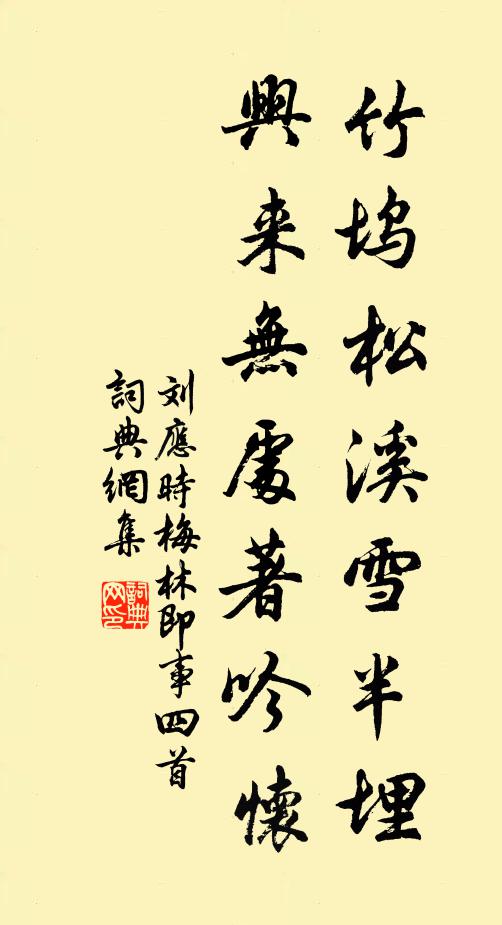 竹坞松溪雪半埋
興来無處著吟懷
刘應時梅林即事四首
詞典網集
詞典网印